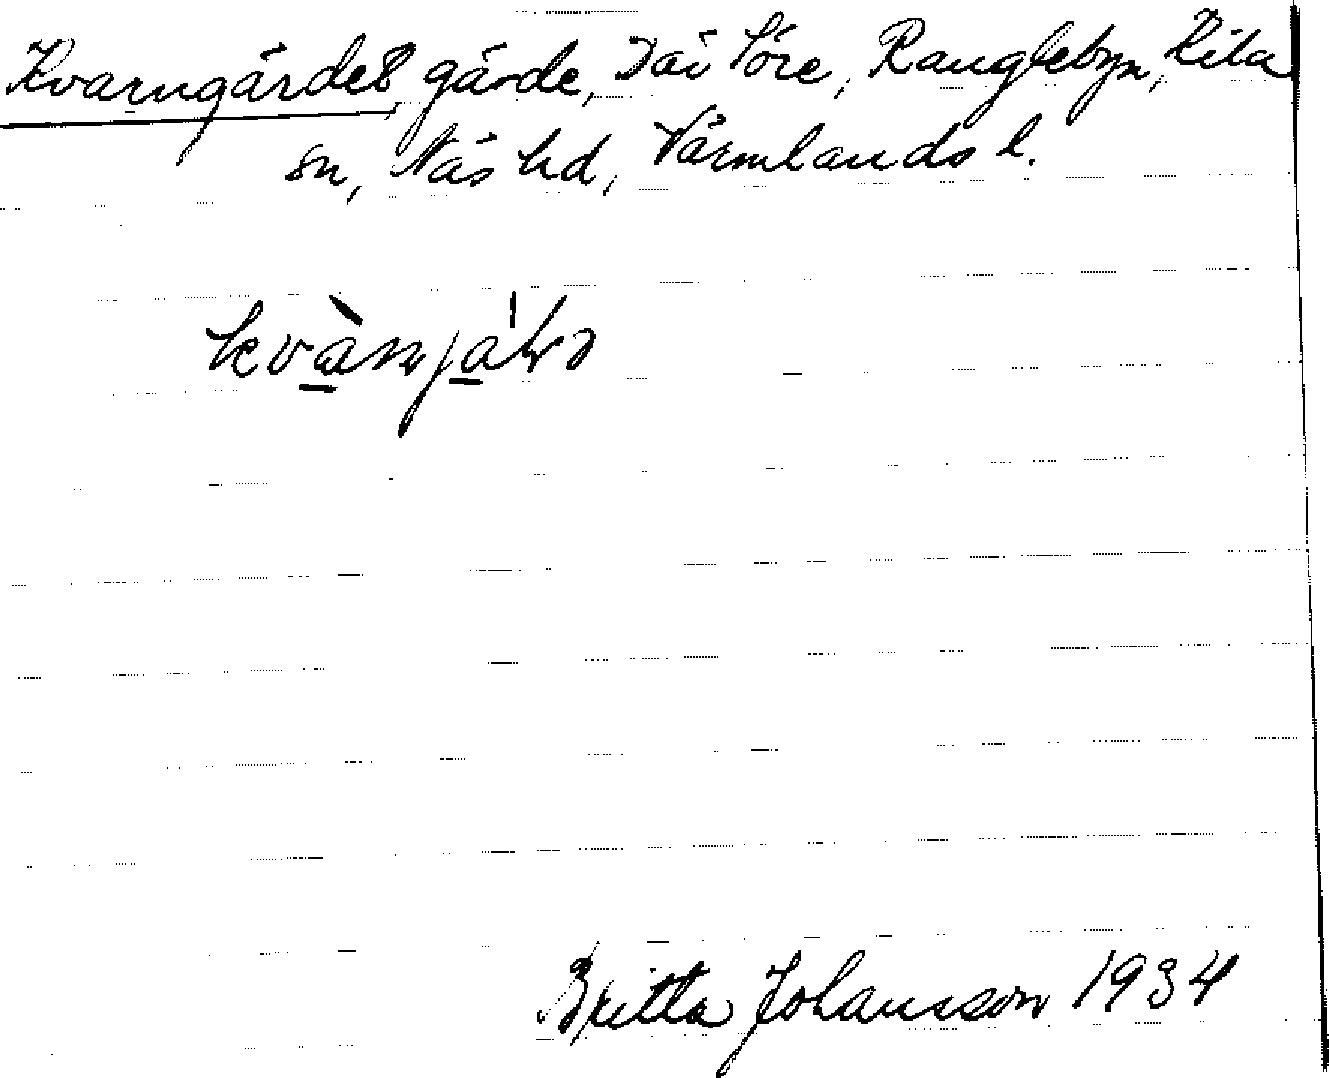 Kvarngärdet, gärde, Där Före, Ranglebyn, Kila
sn, Näs hd, Värmlands l.
Britta Johansson 1934